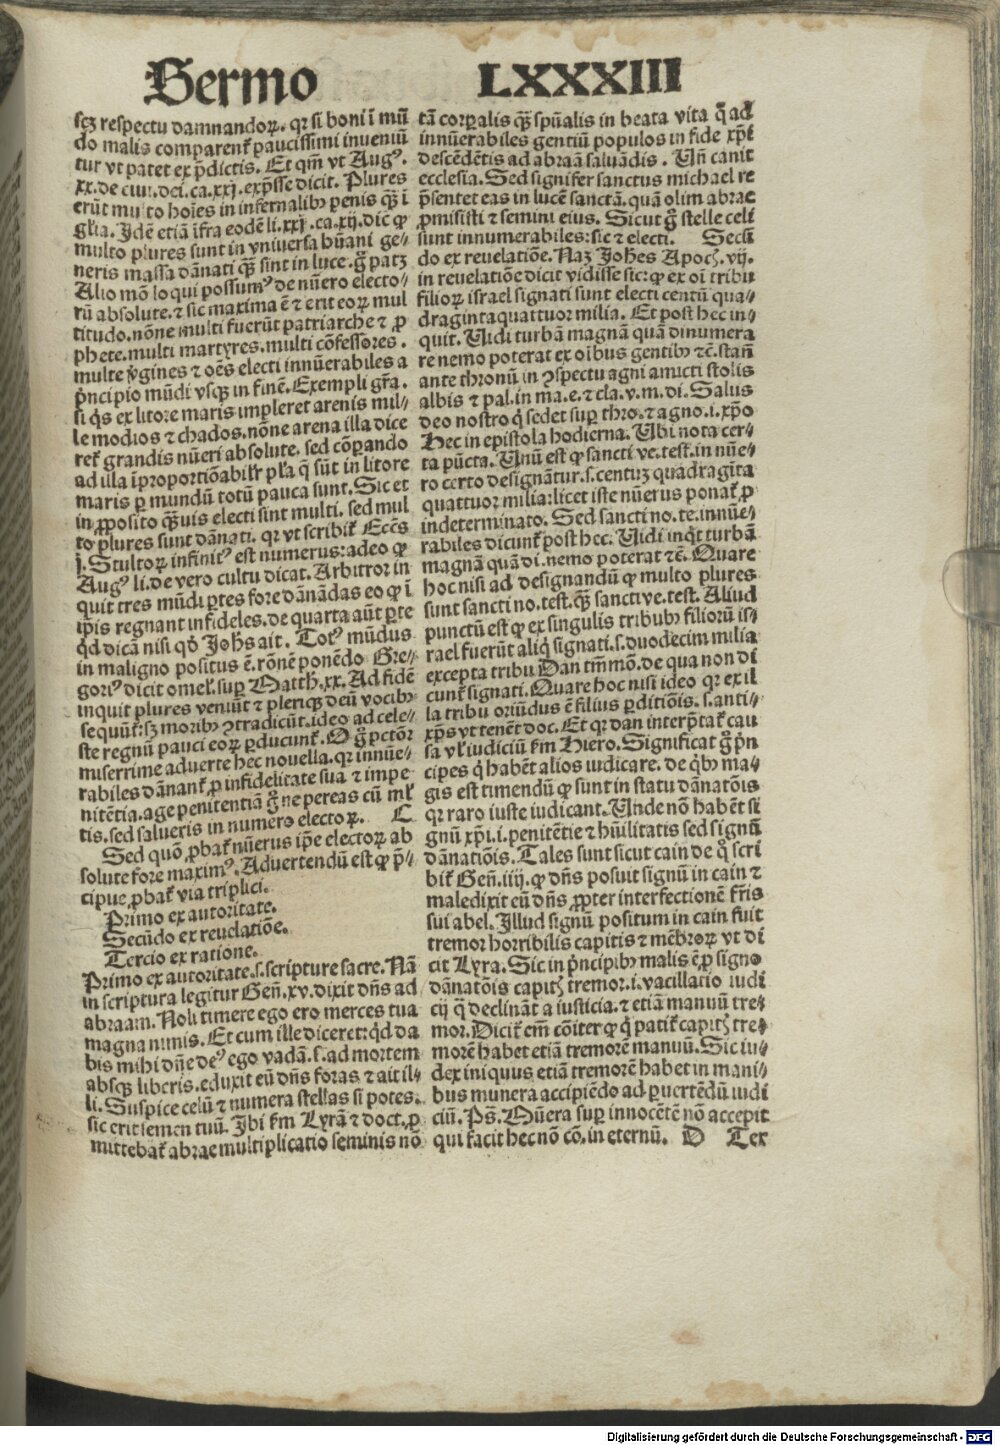 Sermo LXXXIII
scꝫ respectu damnandoꝝ. qꝛ si boni ī mū
do malis comparenť paucissimi inveniū
tur vt patet ex p̄dictis. Et qm̄ vt Augꝰ.
xx. de ciui. dei. ca. xxj. exp̄sse dicit. Plures
erūt multo hoīes in infernalibꝰ penis qꝫ̄ ī
gl̄ia. Idē etiā īfra eodē li. xxj. ca. xij. dic ꝙ
multo plures sunt in vniversa hūani ge⸗
neris massa dānati qꝫ̄ sint in luce. gͦ patꝫ
Alio mō loqui possumꝰ de nūero electo⸗
rū absolute. ⁊ sic maxima ē ⁊ erit eoꝝ mul
titudo. nōne multi fuerūt patriarche ⁊ ꝓ
phete. multi martyres. multi cōfessores.
multe v̓gines ⁊ oēs electi innūerabiles a
pͥncipio mūdi vsqꝫ in finē. Exempli gr̄a.
si qͥs ex litore maris impleret arenis mil⸗
le modios ⁊ chados. nōne arena illa dice
reť grandis nūeri absolute. sed cōꝑando
ad illa īproportiōabilr̄ pl̄a q̄ sūt in litore
maris ꝑ mundū totū pauca sunt. Sic et
in ꝓposito qꝫ̄uis electi sint multi. sed mul
to plures sunt dānati. qꝛ vt scribiť Eccēs
j. Stultoꝝ infinitꝰ est numerus: adeo ꝙ
Augꝰ li. de vero cultu dicat. Arbitror in
quit tres mūdi ꝑtes fore dānādas eo ꝙ ī
ip̄is regnant infideles. de quarta aūt ꝑte
qͥd dicā nisi qō Johs ait. Totꝰ mūdus
in maligno positus ē. rōnē ponēdo Gre⸗
goriꝰ dicit omel̓. suꝑ Matth. xx. Ad fidē
inquit plures veniūt ⁊ pleriqꝫ deū vocibꝰ
sequūť: sꝫ moribꝰ ꝯtradicūt. ideo ad cele⸗
ste regnū pauci eoꝝ ꝑducunť. O gͦ pctōr
miserrime adverte hec novella. qꝛ innūe⸗
rabiles dānanť ꝓ infidelitate sua ⁊ impe
nitētia. age penitentiā gͦ ne pereas cū ml̓
tis. sed salueris in numero electoꝝ. C
Sed quō ꝓbať nūerus ip̄e electoꝝ ab
solute fore maximꝰ. Advertendū est ꝙ p̄⸗
cipue ꝓbať via triplici.
Primo ex autoritate.
Secūdo ex revelatiōe.
Tercio ex ratione.
Primo ex autoritate. s. scripture sacre. Nā
in scriptura legitur Gen̄. xv. dixit dn̄s ad
abraam. Noli timere ego ero merces tua
magna nimis. Et cum ille diceret: qͥd da
bis mihi dn̄e deꝰ ego vadā. s. ad mortem
absqꝫ liberis. eduxit eū dn̄s foras ⁊ ait il⸗
li. Suspice celū ⁊ numera stellas si potes.
sic erit semen tuū. Ibi ẜm Lyrā ⁊ doct. ꝓ
mittebať abrae multiplicatio seminis nō
tā corꝑalis qꝫ̄ spūalis in beata vita q̄ ad
innūerabiles gentiū populos in fide xp̄i
descēdētis ad abraā saluādis. Un̄ canit
ecclesia. Sed signifer sanctus michael re
p̄sentet eas in lucē sanctā. quā olim abrae
ꝓmisisti ⁊ semini eius. Sicut gͦ stelle celi
sunt innumerabiles: sic ⁊ electi. Secū
do ex revelatiōe. Naꝫ Johēs Apoc̄. vij.
in revelatiōe dicit vidisse sic: ꝙ ex oī tribu
filioꝝ israel signati sunt electi centū qua⸗
dragintaquattuor milia. Et post hec in⸗
quit. Uidi turbā magnā quā dinumera
re nemo poterat ex oībus gentibꝰ ⁊c̄. stan̄
ante thronū in ꝯspectu agni amicti stolis
albis ⁊ pal. in ma. e. ⁊ cla. v. m. di. Salus
deo nostro qͥ sedet suꝑ thro. ⁊ agno. i. xp̄o
Hec in epistola hodierna. Ubi nota cer⸗
ta pūcta. Unū est ꝙ sancti ve. test. in nūe⸗
ro certo designātur. s. centuꝫ quadragīta
quattuor milia: licet iste nūerus ponať ꝓ
indeterminato. Sed sancti no. te. innūe⸗
rabiles dicunť post hec. Uidi inqͥt turbā
magnā quā di. nemo poterat ⁊c̄. Quare
hoc nisi ad designandū ꝙ multo plures
sunt sancti no. test. qꝫ̄ sancti ve. test. Aliud
punctū est ꝙ ex singulis tribubꝰ filiorū is⸗
rael fuerūt aliqͥ signati. s. duodecim milia
excepta tribu Dan tm̄mō. de qua non di
cunť signati. Quare hoc nisi ideo qꝛ ex il
la tribu oriūdus ē filius ꝑditiōis. s. anti⸗
xp̄s vt tenēt doc. Et qꝛ dan interp̄tať cau
sa vl̓ iudiciū ẜm Hiero. Significat gͦ pͥn
cipes qͥ habēt alios iudicare. de qͥbꝰ ma
gis est timendū ꝙ sunt in statu dānatōis
qꝛ raro iuste iudicant. Unde nō habēt si
gnū xp̄i. i. penitētie ⁊ hūilitatis sed signū
dānatiōis. Tales sunt sicut cain de qͦ scri
biť Gen̄. iiij. ꝙ dn̄s posuit signū in cain ⁊
maledixit eū dn̄s ꝓpter interfectionē fr̄is
sui abel. Illud signū positum in cain fuit
tremor horribilis capitis ⁊ mēbroꝝ vt di
cit Lyra. Sic in pͥncipibꝰ malis ē ꝓ signo
dānatōis capitꝭ tremor. i. vacillatio iudi
cij qͣ declināt a iusticia. ⁊ etiā manuū tre⸗
mor. Diciť em̄ cōiter ꝙ qͥ patiť capitꝭ tre⸗
morē habet etiā tremorē manuū. Sic iu⸗
dex iniquus etiā tremorē habet in mani⸗
bus munera accipiēdo ad ꝑvertēdū iudi
ciū. Ps̄. Mūera suꝑ innocētē nō accepit
qui facit hec nō cō. in eternū. D Ter
Digitalisierung gefördert durch die Deutsche Forschungsgemeinschaft - DFG